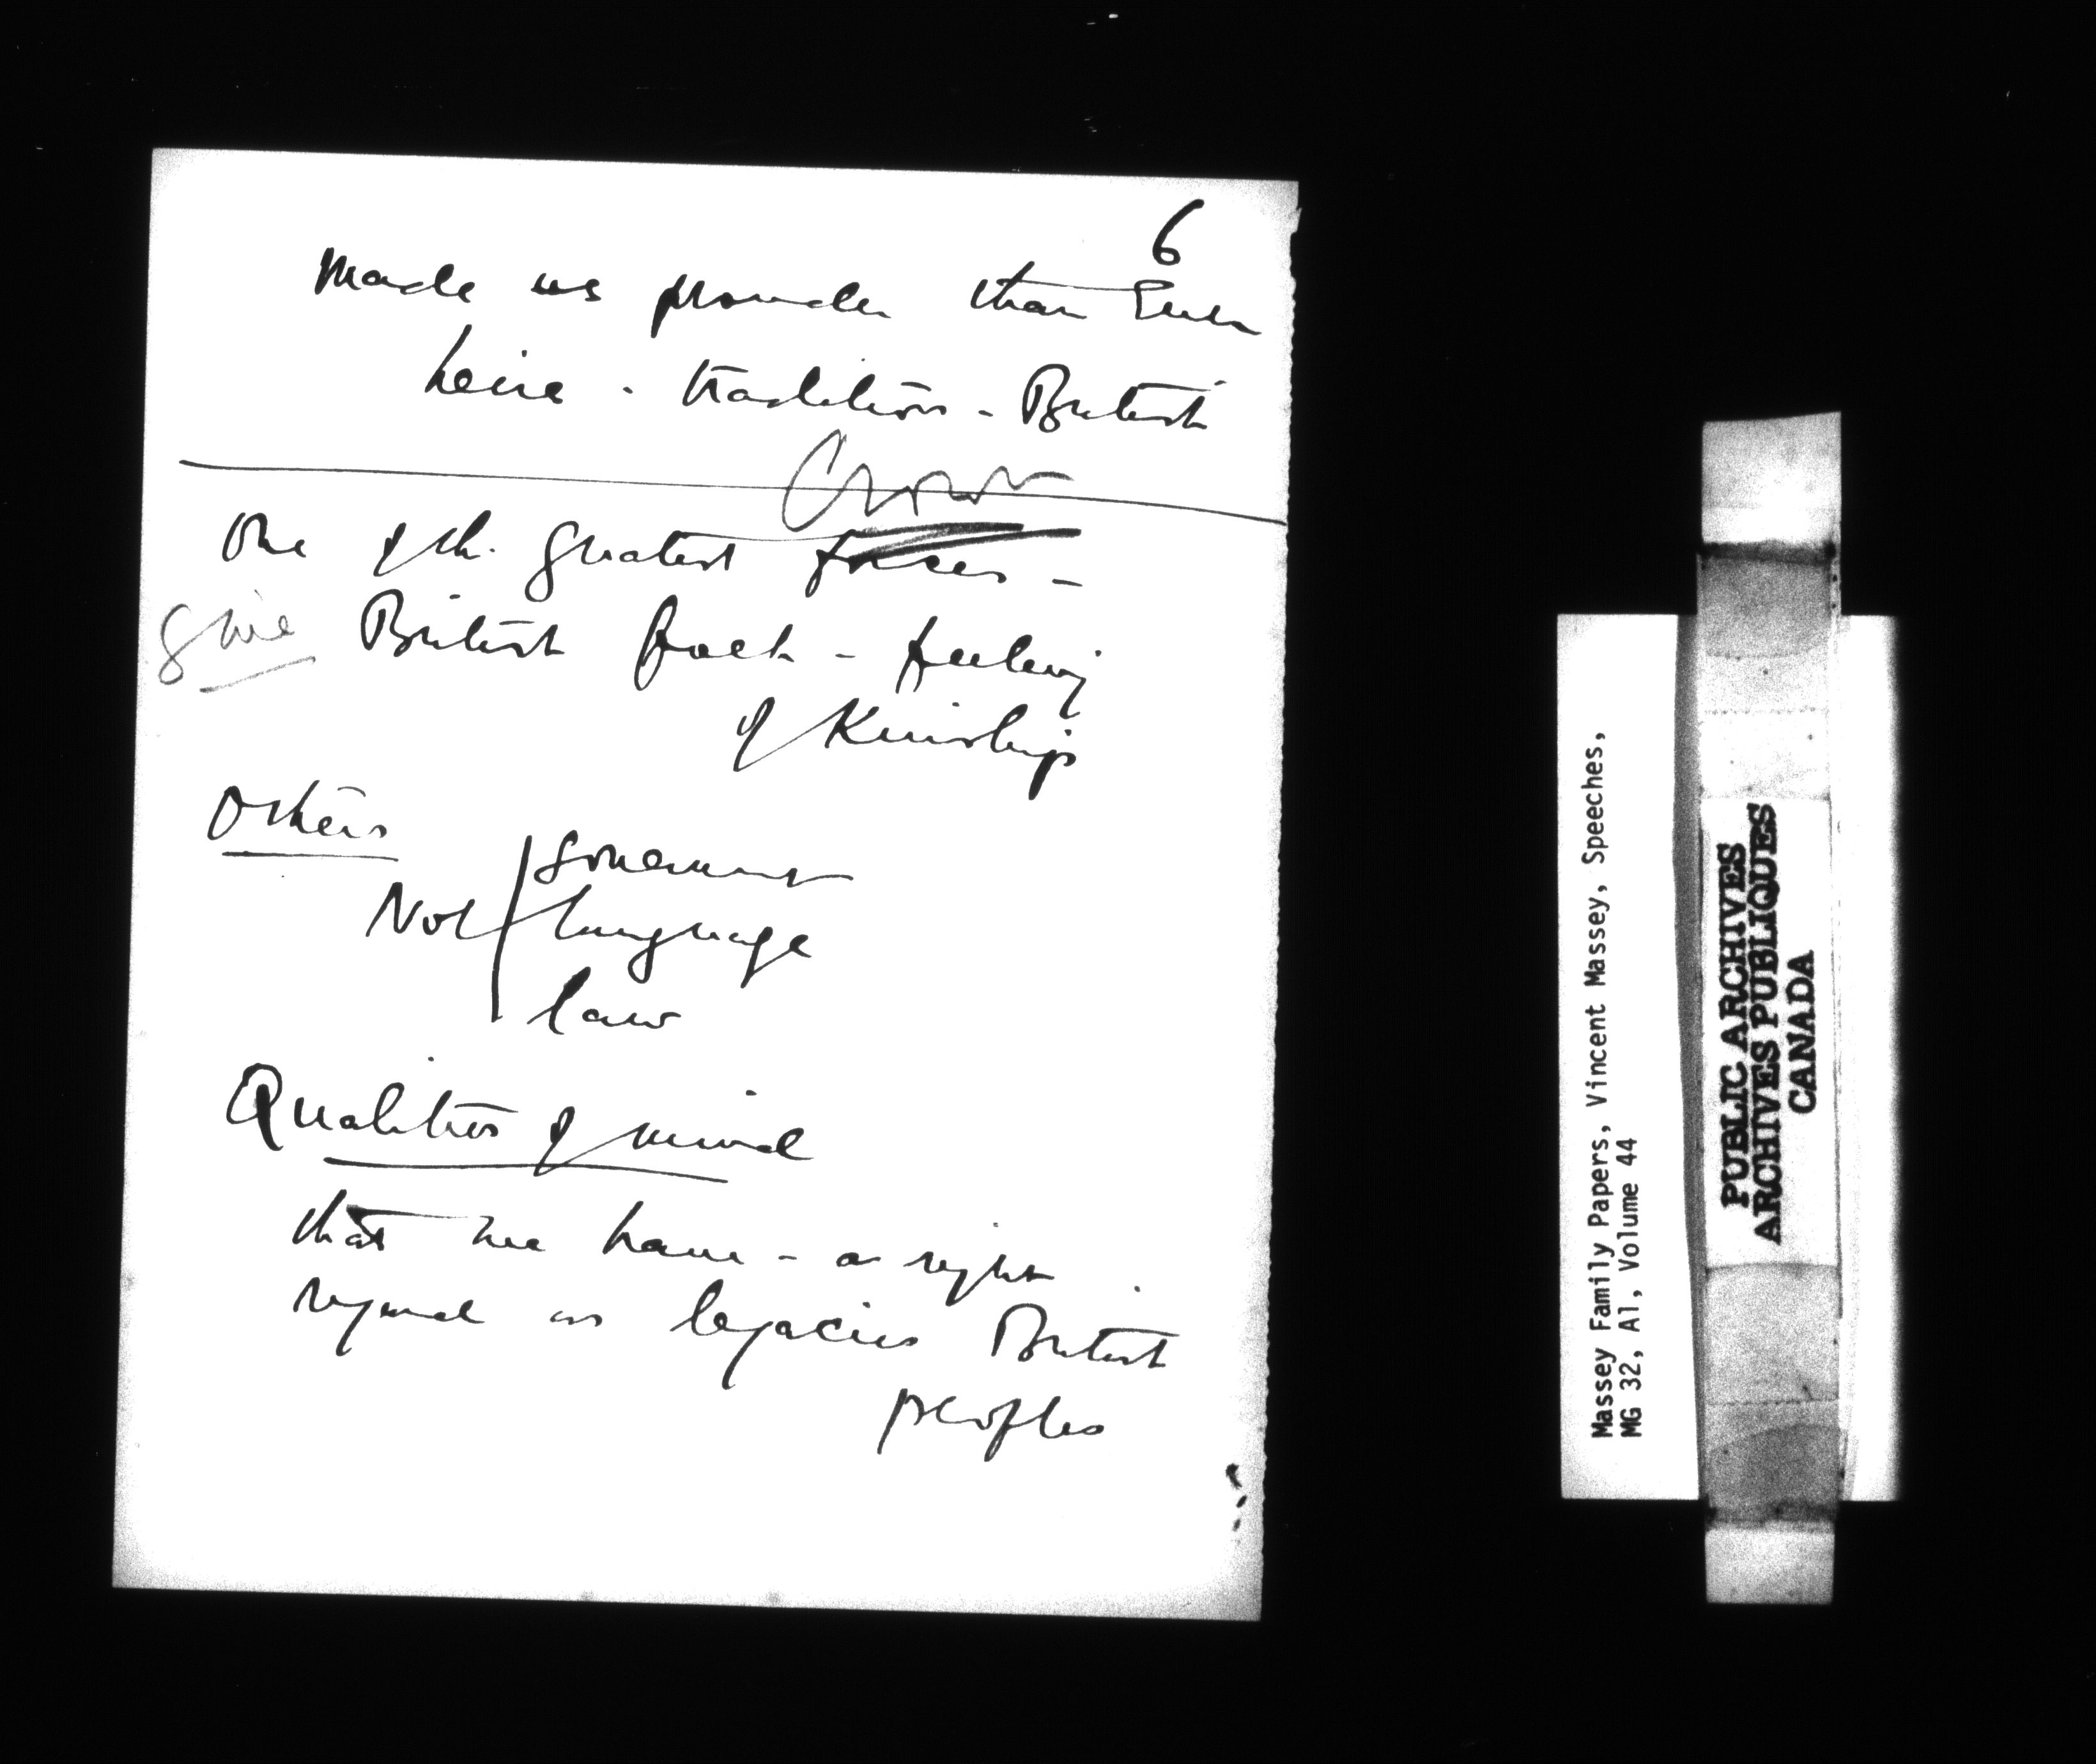 6
Made us prouder than Ever
heirs - tradition - British
Crown
One of th. greatest forces -
give British folk - feeling
of Kinship
Others
Not Government
language
law
Qualities of mind
that we have - a right
regard as legacies British
peoples
Massey Family Papers, Vincent Massey, Speeches,
MG 32, A1, Volume 44
PUBLIC ARCHIVES
ARCHIVES PUBLIQUES
CANADA